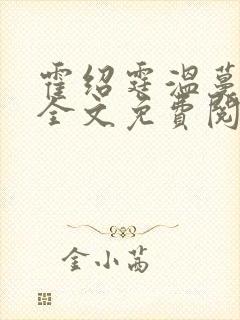 霍绍霆温蔓
全文免费阅
金小茜